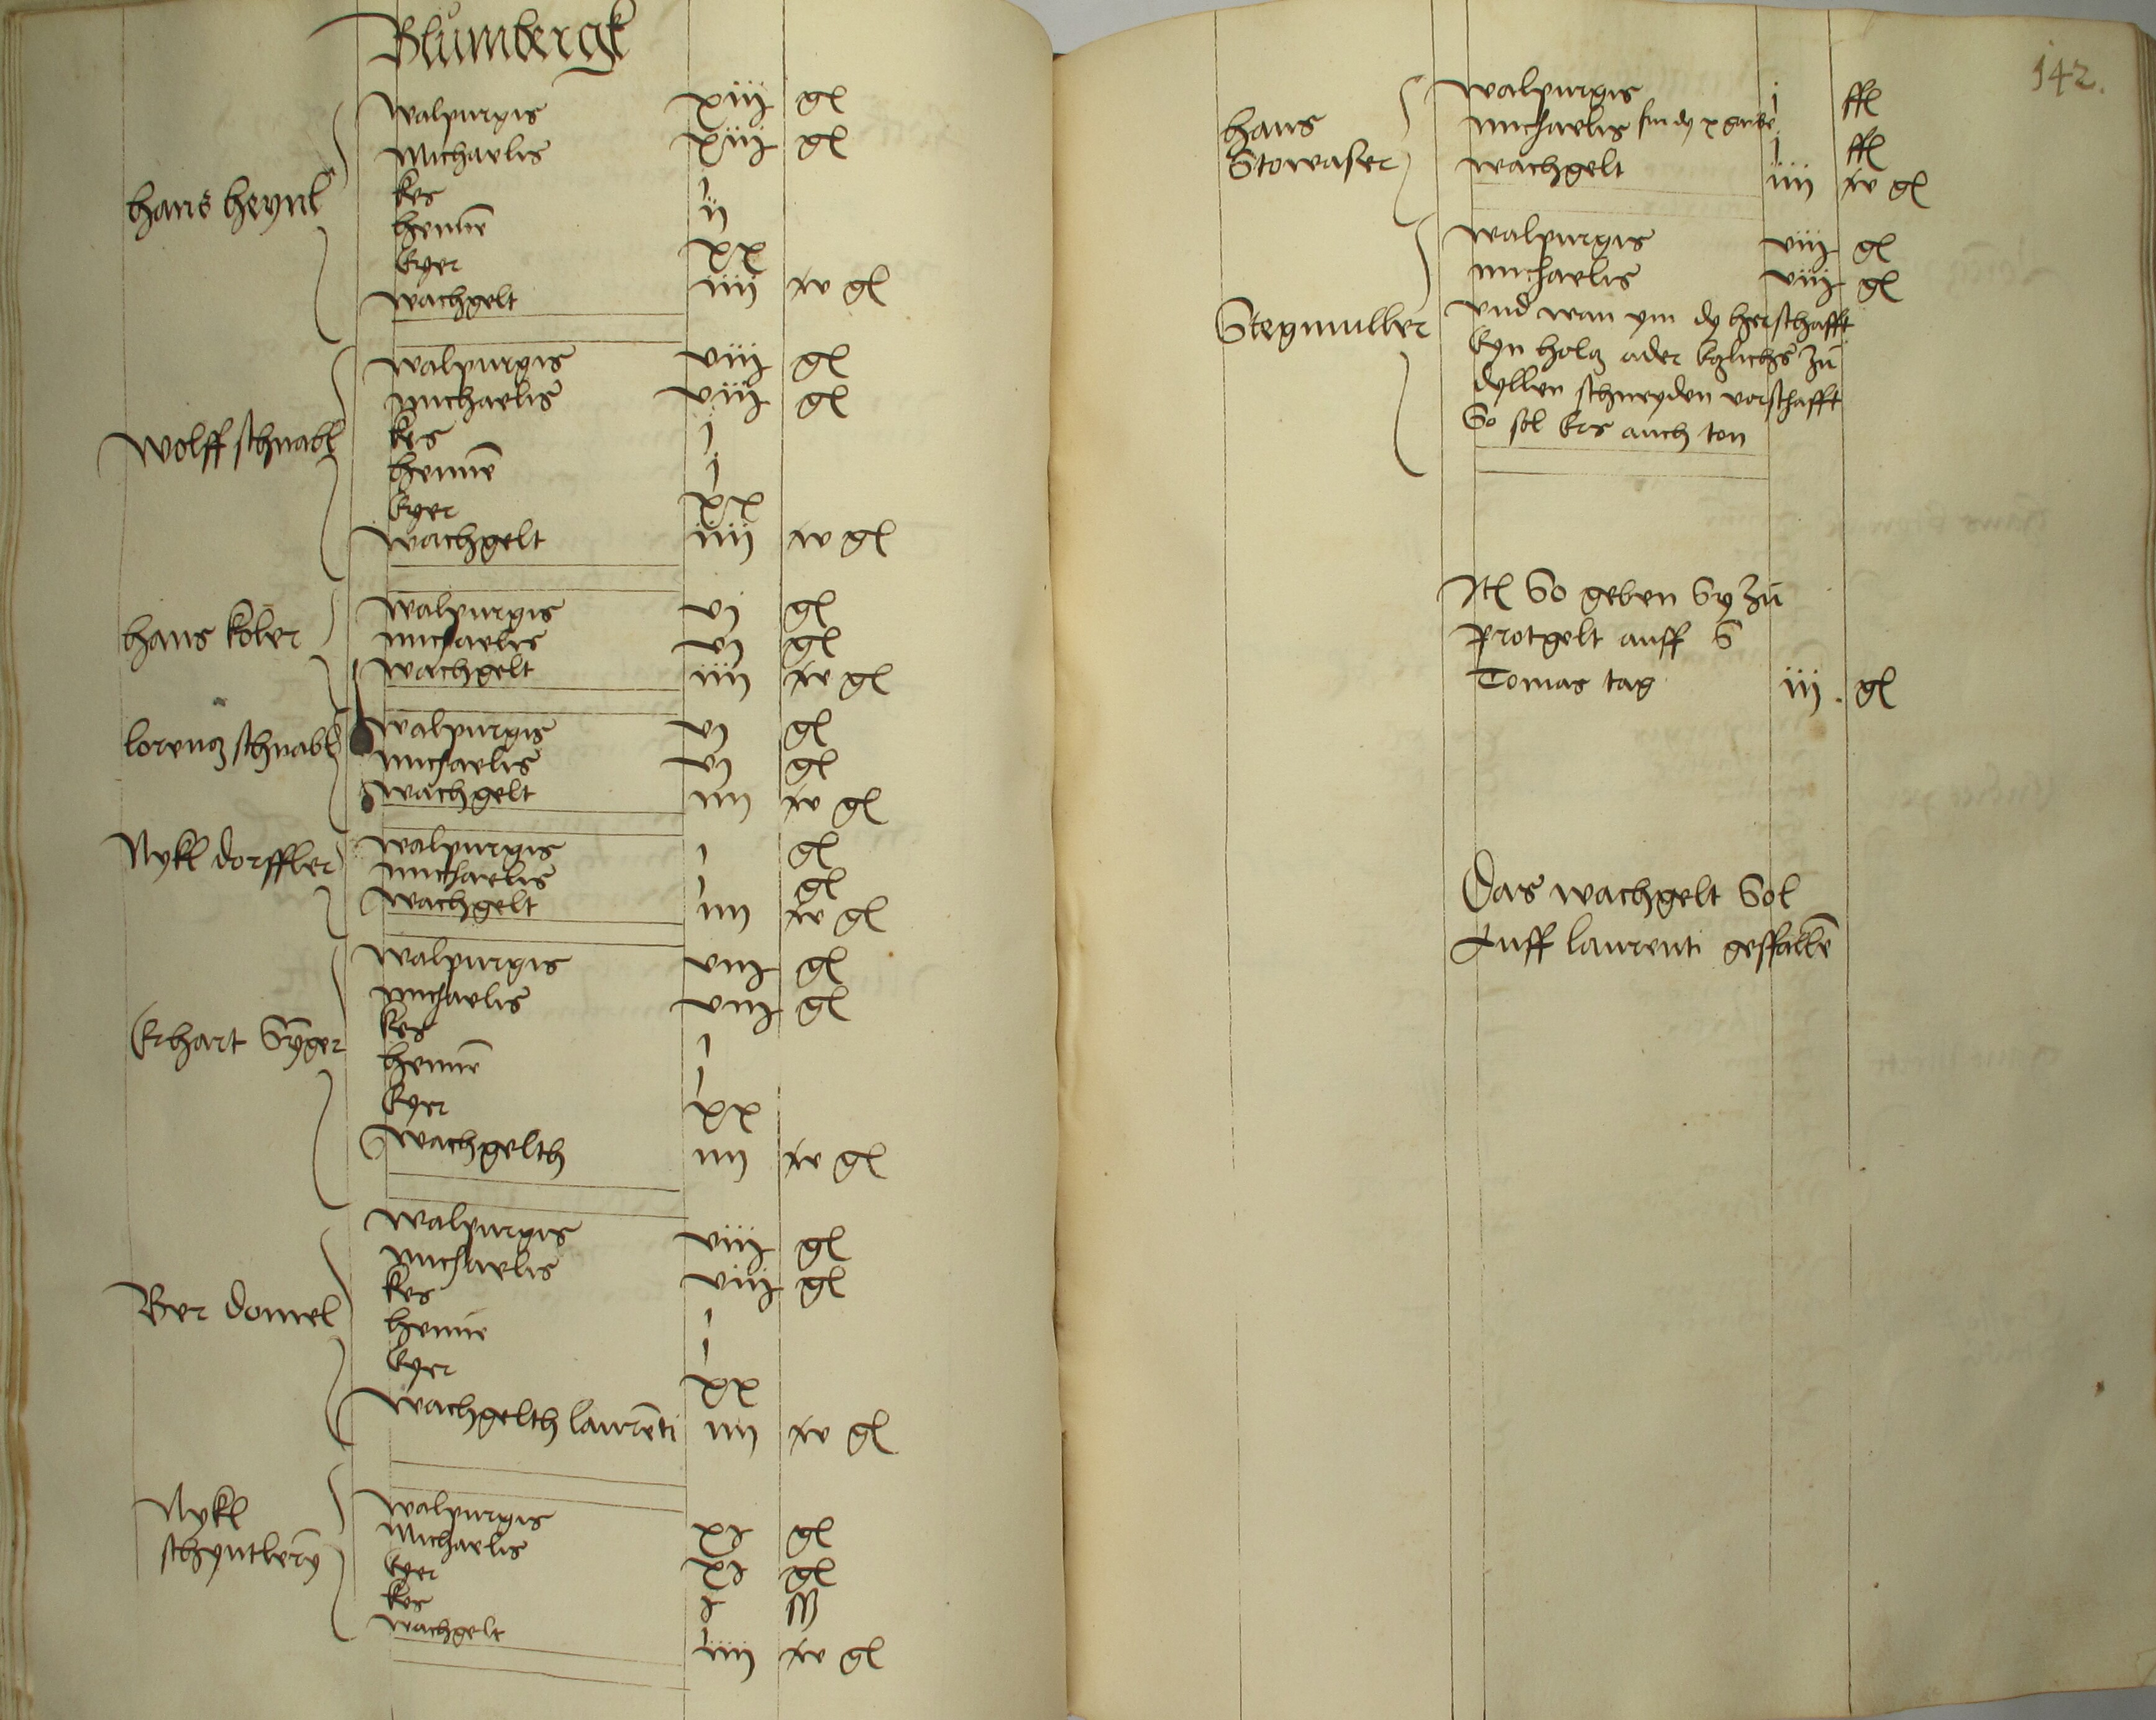 Blumbergk
hans heynl
Walpurgis xiiij gl
Michaelis xiiij gl
kes i
hennē ij
Eyer xx
wachgelt iiij gl
Wolff schnabl
walpurgis viij gl
michaelis viij gl
kes i
hennē i
Eyer xx
wachgelt iiij gl
hans koler
walpurgis vj gl
michaelis vj gl
wachgelt iiij gl
lorencz schnabl
walpurgis vj gl
michaelis vj gl
wachgelt iiij gl
Nykl dorffler
walpurgis i gl
michaelis i gl
wachgelt iiij gl
Erhart Syger
walpurgis viij gl
michaelis viij gl
kes i
hennē i
Eyer xx
wachgelth iiij gl
Ber domel
walpurgis viij gl
michaelis viij gl
kes i
henne i
Eyer xx
wachgelth laurēti iiij gl
Nykl
schyntlery
walpurgis gl
Michaelis gl
Eyer
kes
wachgelt iiij gl
142.
hans
Stowaser
walpurgis i ffl
michaelis i ffl
wachgelt iiij gl
Stegmuller
walpurgis viij gl
michaelis viij gl
vnd wan ym dy herschafft
Eyn holcz ader zu
dyllen schneyden vorschafft
So sol Ers auch ton
Itl So geben Sy zu
protgelt auff S
Tomas tag iij. gl
Das wachgelt Sol
Auff laurenti geffallē